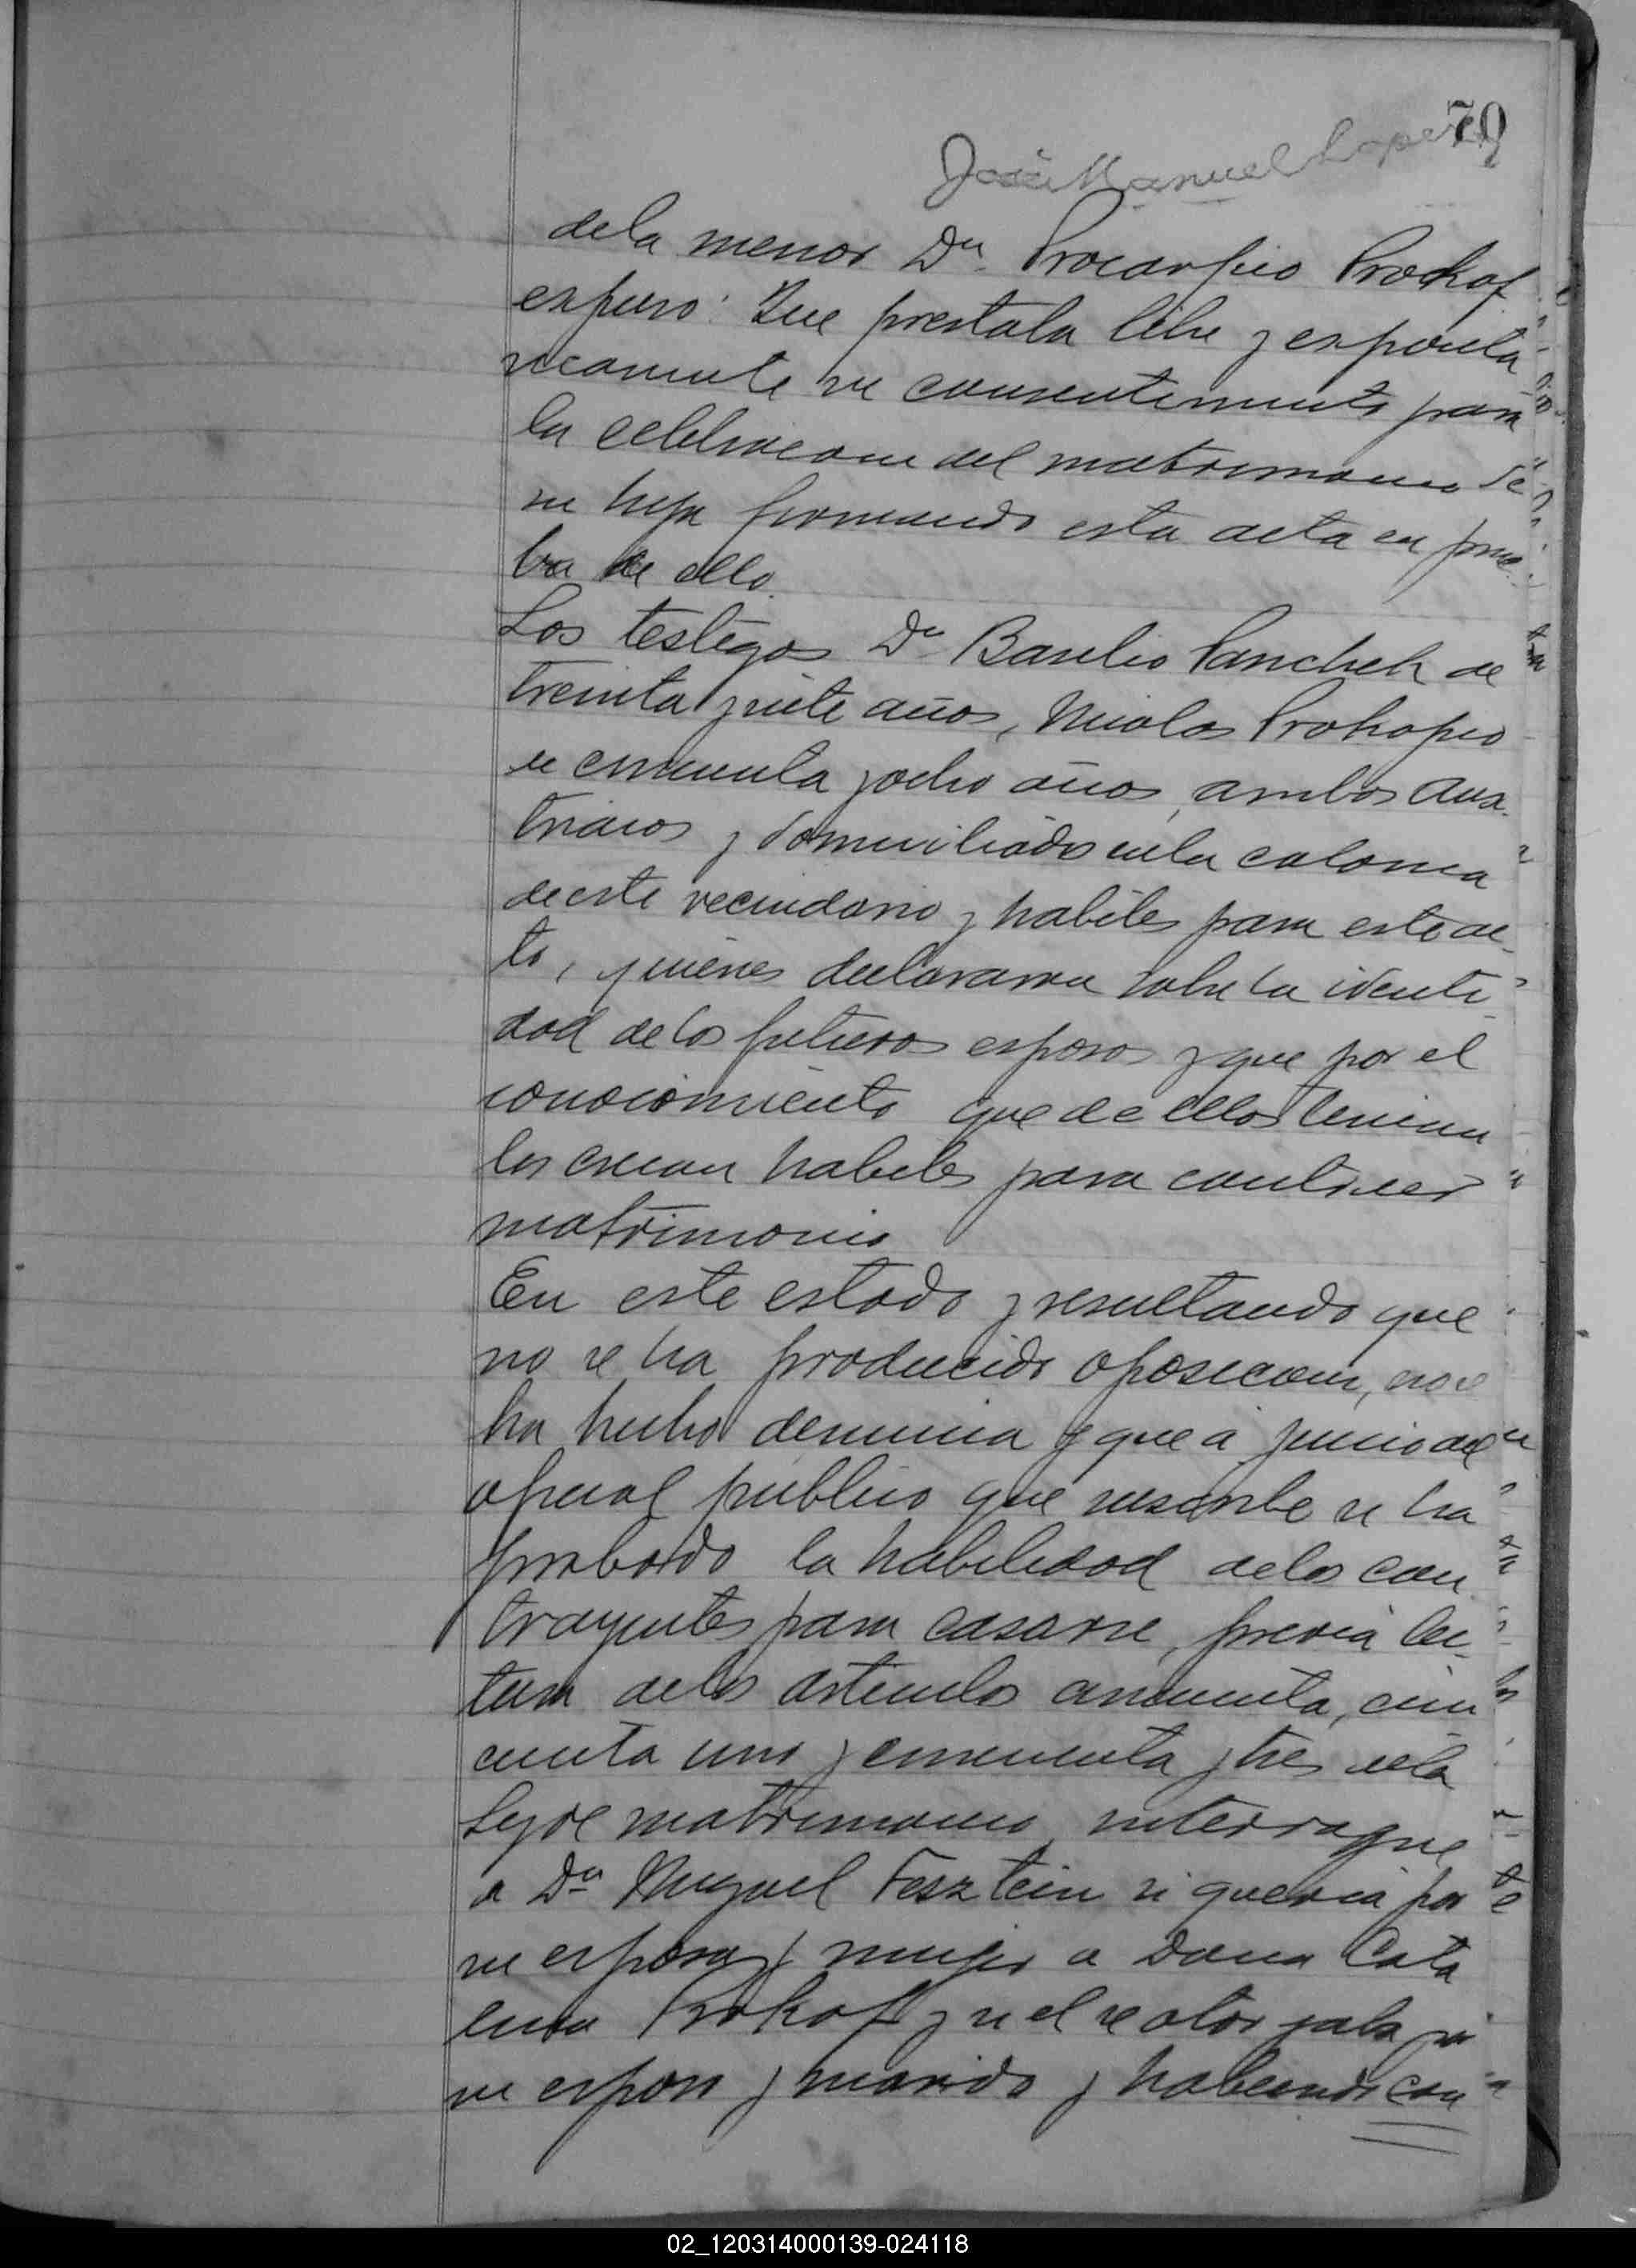 79
José Manuel Lope
dela menor Dn Procarpio Prokof
expuso: Que prestaba libre y espontá
neamente su consentimiento para
la celebracion del matrimonio de
su hija firmando esta acta en prue
ba de ello.
Los testigos Dn Basilio Panchek de
treinta y siete años, Nicolas Prokopio
de cincuenta y ocho años, ambos Aus
triacos y domiciliados en la colonia
de este vecindario y habiles para este ac
to, quienes declararon sobre la identi
dad de los futuros esposos y que por el
conocimiento que de ellos tenian
los creian habiles para contraer
matrimonio
En este estado y resultando que
no se ha producido oposicion, no se
ha hecho denuncia y que a juicio del
oficial publico que suscribe se ha
probado la habilidad de los con
trayentes para casarse, previa lec
tura de los articulos cincuenta, cin
cuenta uno y cincuenta y tres de la
Ley de matrimonio interrogue
a Dn Miguel Fesztein si queria por
su esposa y mujer a Doña Cata
lina Prokof y si el se otorgaba por
su esposo y marido y habiendo con
02_120314000139-024118